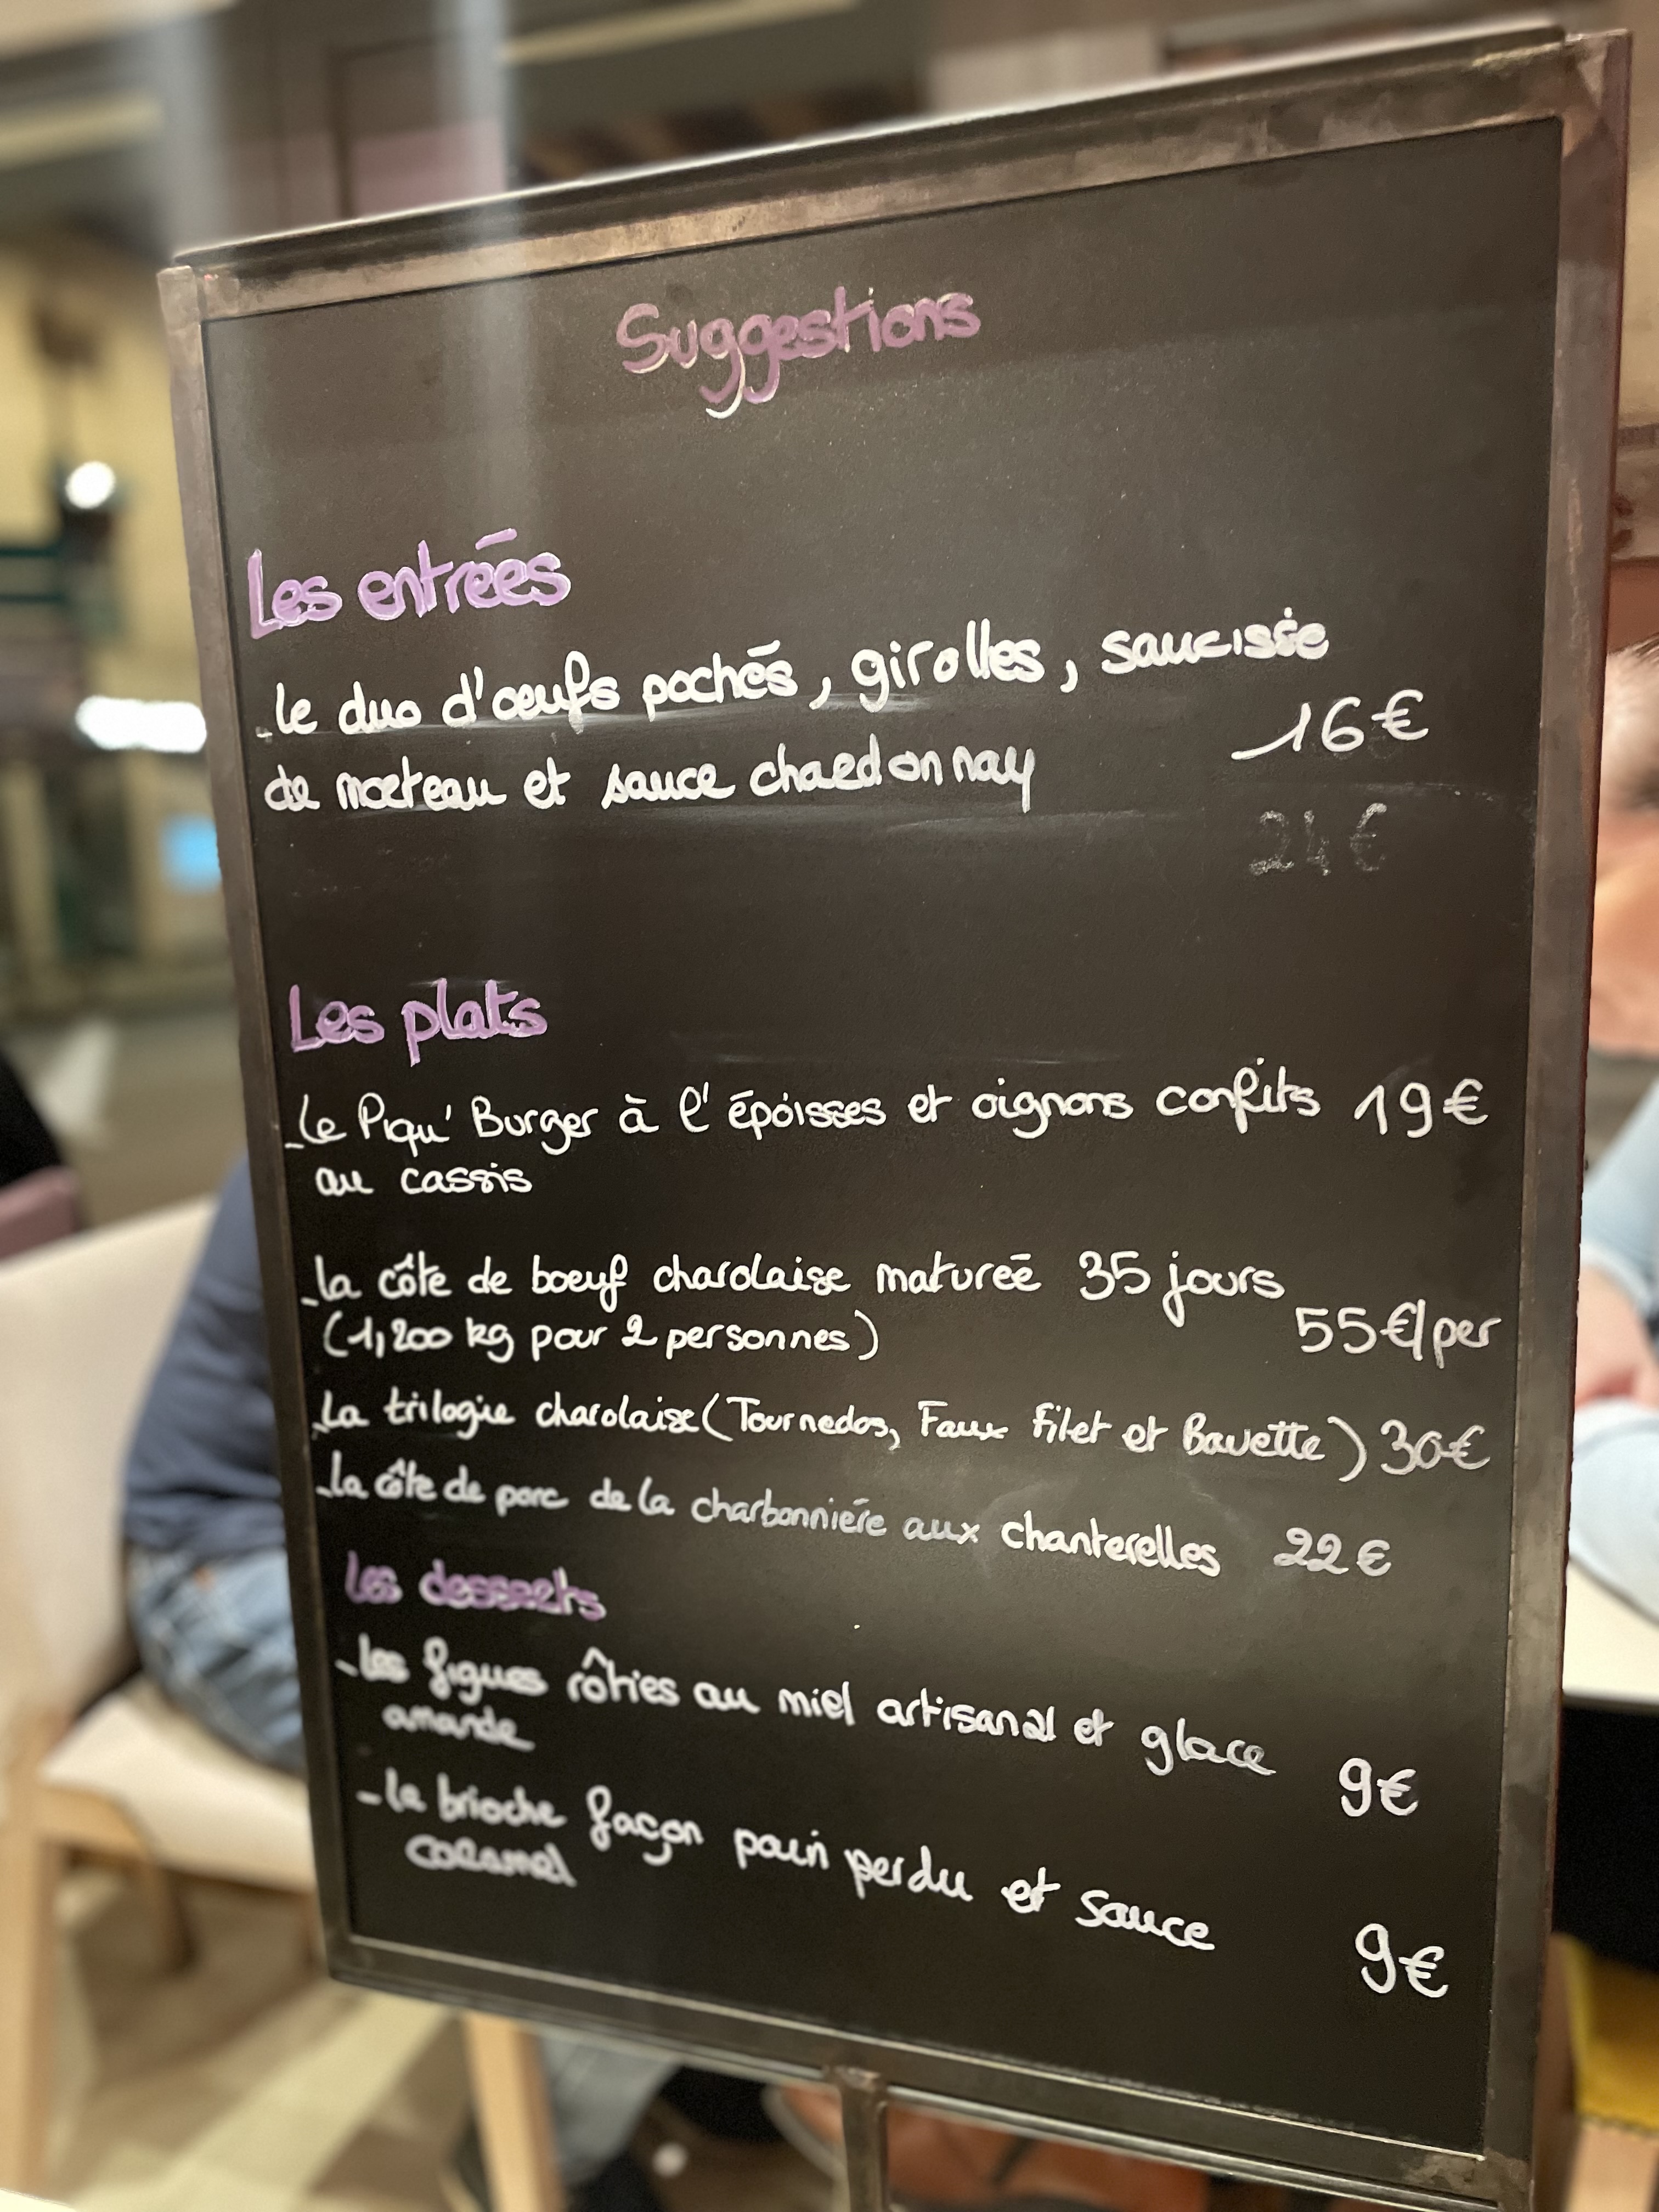 Suggestions
Les entrées
- le duo d'œufs pochés, girolles, saucisse
16€
de morteau et sauce chardonnay
24€
Les plats
- Le Piqu' Burger à l'époisses et oignons confits 19€
au cassis
- la côte de boeuf charolaise maturée 35 jours
(1,200 kg pour 2 personnes) 55€/per
- La trilogie charolaise (Tournedos, Faux filet et Bavette) 30€
- la côte de porc de la charbonnière aux chanterelles 22€
Les desserts
- les figues rôties au miel artisanal et glace
amande 9€
- la brioche façon pain perdu et sauce
caramel 9€